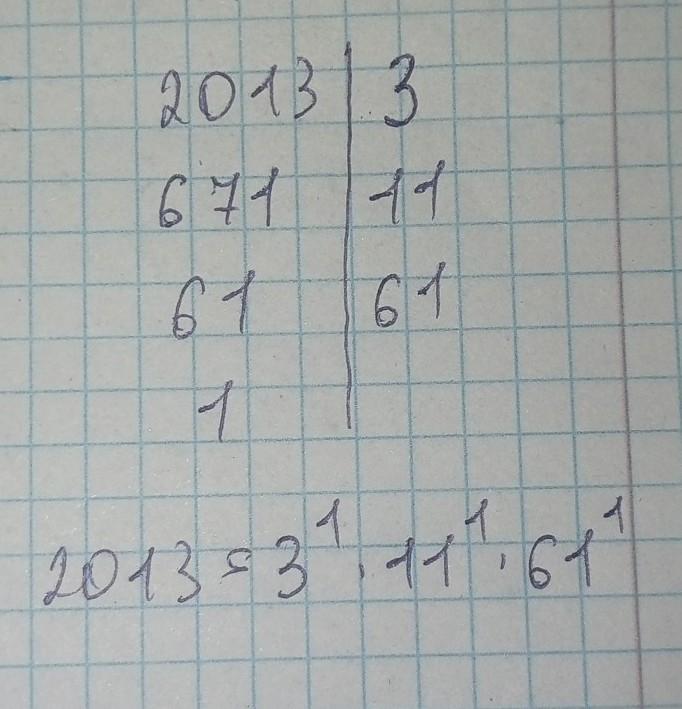 2013 | 3
671 | 11
61 | 61
1 |
2013 = 3¹ · 11¹ · 61¹